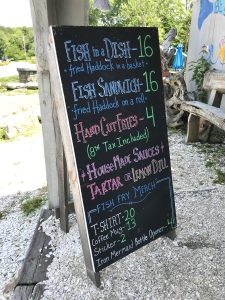 FISH in a DISH - 16
fried Haddock in a basket
FISH SANDWICH - 16
fried Haddock on a roll
HAND CUT FRIES - 4
(GW Tax Included)
HOUSE MADE SAUCES
TARTAR OR LEMON DILL
FISH FRY MERCH
T-SHIRT - 20
Coffee Mug - 13
Sticker - 2
Iron Mermaid Bottle Opener - 4